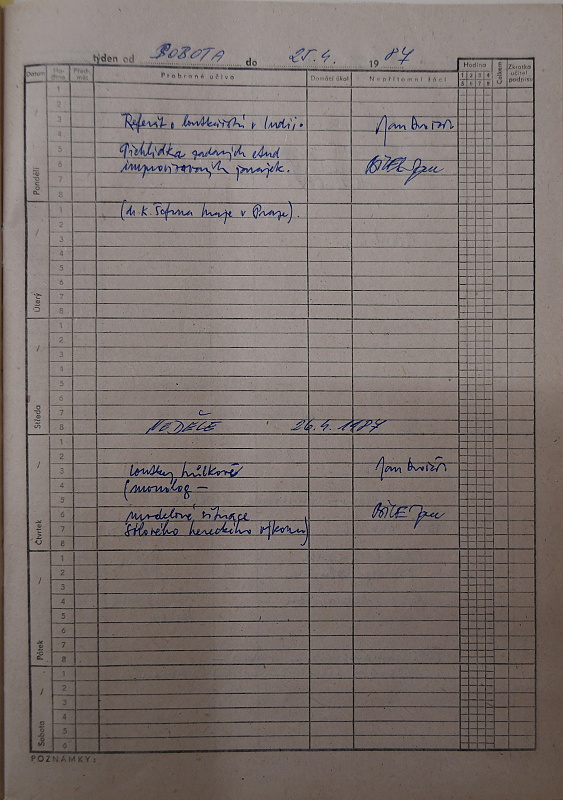 týden od SOBOTA do 25.4. 1987
Datum Ho-dina Předmět Probrané učivo Domácí úkol Nepřítomní žáci Hodina Celkem Zkratka učitel podpisu
1 2 3 4
5 6 7 8
Pondělí
1
2
3 Referát o loutkářství v Indii. Jan Dvořák
4
5 Přehlídka zadaných etud
6 improvizovaných Bílek Jan
7
8
Úterý
1 (dr. K. v Praze).
2
3
4
5
6
7
8
Středa
1
2
3
4
5
6
7
8 NEDĚLE 26.4.1987
Čtvrtek
1
2
3 loutky hůlkové Jan Dvořák
4 (monolog –
5
6 modelové situace Bílek Jan
7 sólového hereckého výkonu)
8
Pátek
1
2
3
4
5
6
7
8
Sobota
1
2
3
4
5
6
POZNÁMKY: